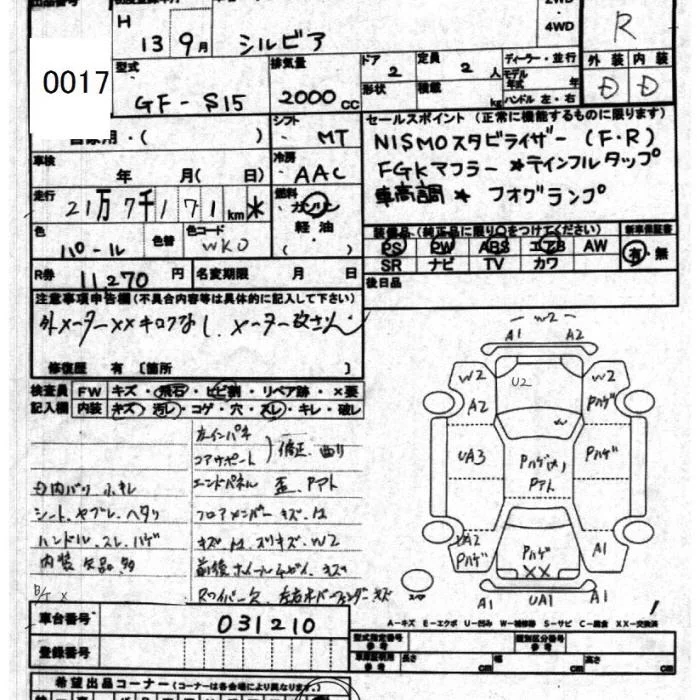 H
13 9月 シルビア
2WD
4WD
R
0017
型式
GF-S15
排気量
2000 CC
ドア 2
定員 2 人
形状
積載 kg
ディーラー・並行
モデル
年式 年
ハンドル 左・右
外装 内装
D D
自家用・( )
シフト
MT
セールスポイント (正常に機能するものに限ります)
NISMOスタビライザー (F・R)
FGKマフラー *テインフルタップ
車高調 * フォグランプ
車検
年 月( 日)
冷房
AAC
走行
21万7千171km *
燃料
ガソリン
軽油
( )
色
パール
色替
色コード
WK0
装備品 (純正品に限り○をつけてください)
新車保証書
PS PW ABS エアB AW
有・無
SR ナビ TV カワ
R券 11270 円
名変期限 月 日
後日品
注意事項申告欄 (不具合内容等は具体的に記入して下さい)
外メーター××キロフなし. メーター改ざん
修復歴 有 [箇所 ]
検査員 FW キズ・飛石・ヒビ割・リペア跡・×要
記入欄 内装 キズ・汚レ・コゲ・穴・スレ・キレ・破レ
左インパネ
コアサポート
修正、曲り
エンドパネル 歪、Pアト
シート、ヤブレ、ヘタリ
フロアメンバー キズ、凹
ハンドル、スレ、ハゲ
キズ、凹、スリキズ、W2
内装 欠品 多
Rワイパー欠
W2
A1 A2
W2 U2 W2
A2 Pハゲ
W
UA3 Pハゲ
Pアト
UA2 Pハゲ A1
Pハゲ ××
スペア
A1 UA1 A1
A-キズ E-エクボ U-凹み W-補修跡 S-サビ C-腐食 XX-交換済
車台番号 031210
登録番号
型式指定番号 類別区分番号
車庫証明用
参考
長さ cm 幅 cm 高さ cm
希望出品コーナー (コーナーは各会場により異なります。)